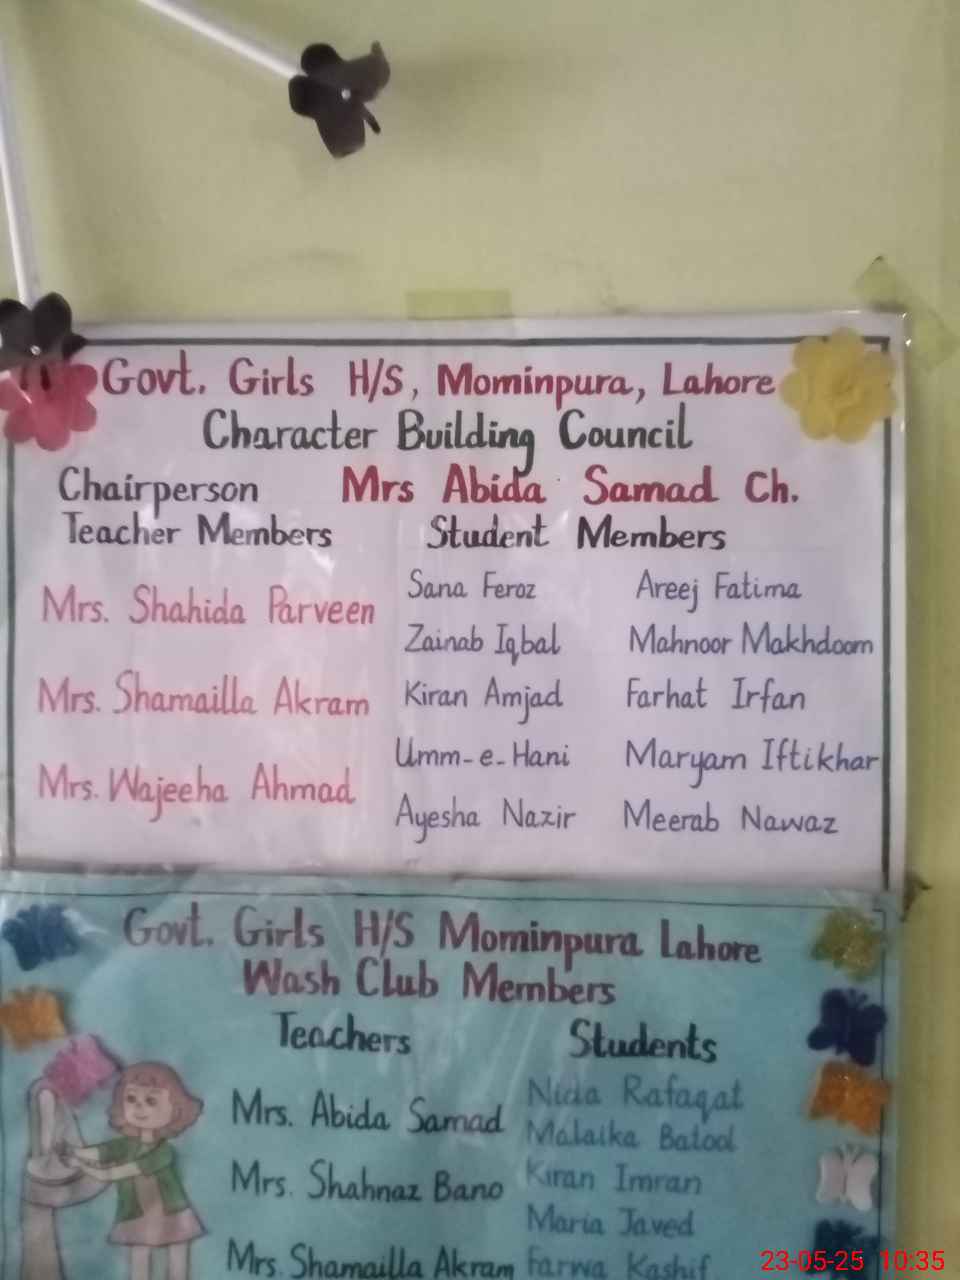 Govt. Girls H/S, Mominpura, Lahore
Character Building Council
Chairperson Mrs Abida Samad Ch.
Teacher Members Student Members
Mrs. Shahida Parveen
Mrs. Shamailla Akram
Mrs. Wajeeha Ahmad
Sana Feroz Areej Fatima
Zainab Iqbal Mahnoor Makhdoom
Kiran Amjad Farhat Irfan
Umm-e-Hani Maryam Iftikhar
Ayesha Nazir Meerab Nawaz
Govt. Girls H/S Mominpura Lahore
Wash Club Members
Teachers Students
Mrs. Abida Samad
Mrs. Shahnaz Bano
Mrs. Shamailla Akram
Nida Rafaqat
Malaika Batool
Kiran Imran
Maria Javed
Farwa Kashif
23-05-25 10:35